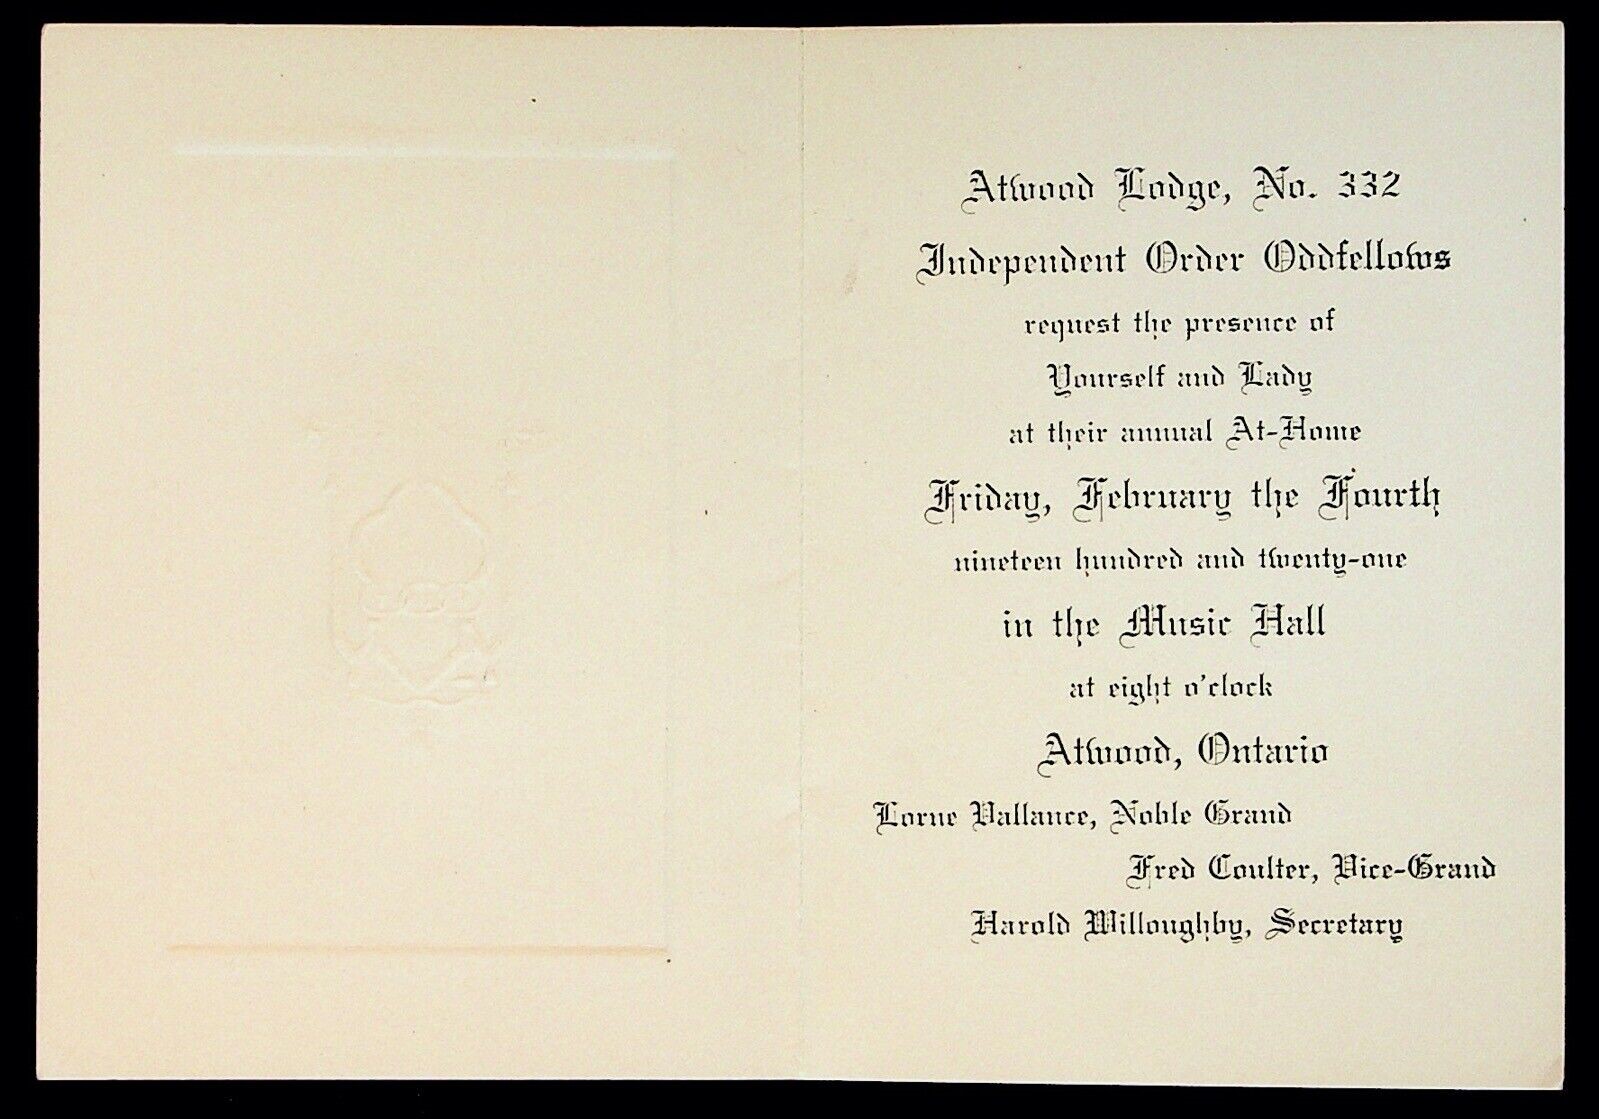 Atwood Lodge, No. 332
Independent Order Oddfellows
request the presence of
Yourself and Lady
at their annual At-Home
Friday, February the Fourth
nineteen hundred and twenty-one
in the Music Hall
at eight o'clock
Atwood, Ontario
Lorne Vallance, Noble Grand
Fred Coulter, Vice-Grand
Harold Willoughby, Secretary